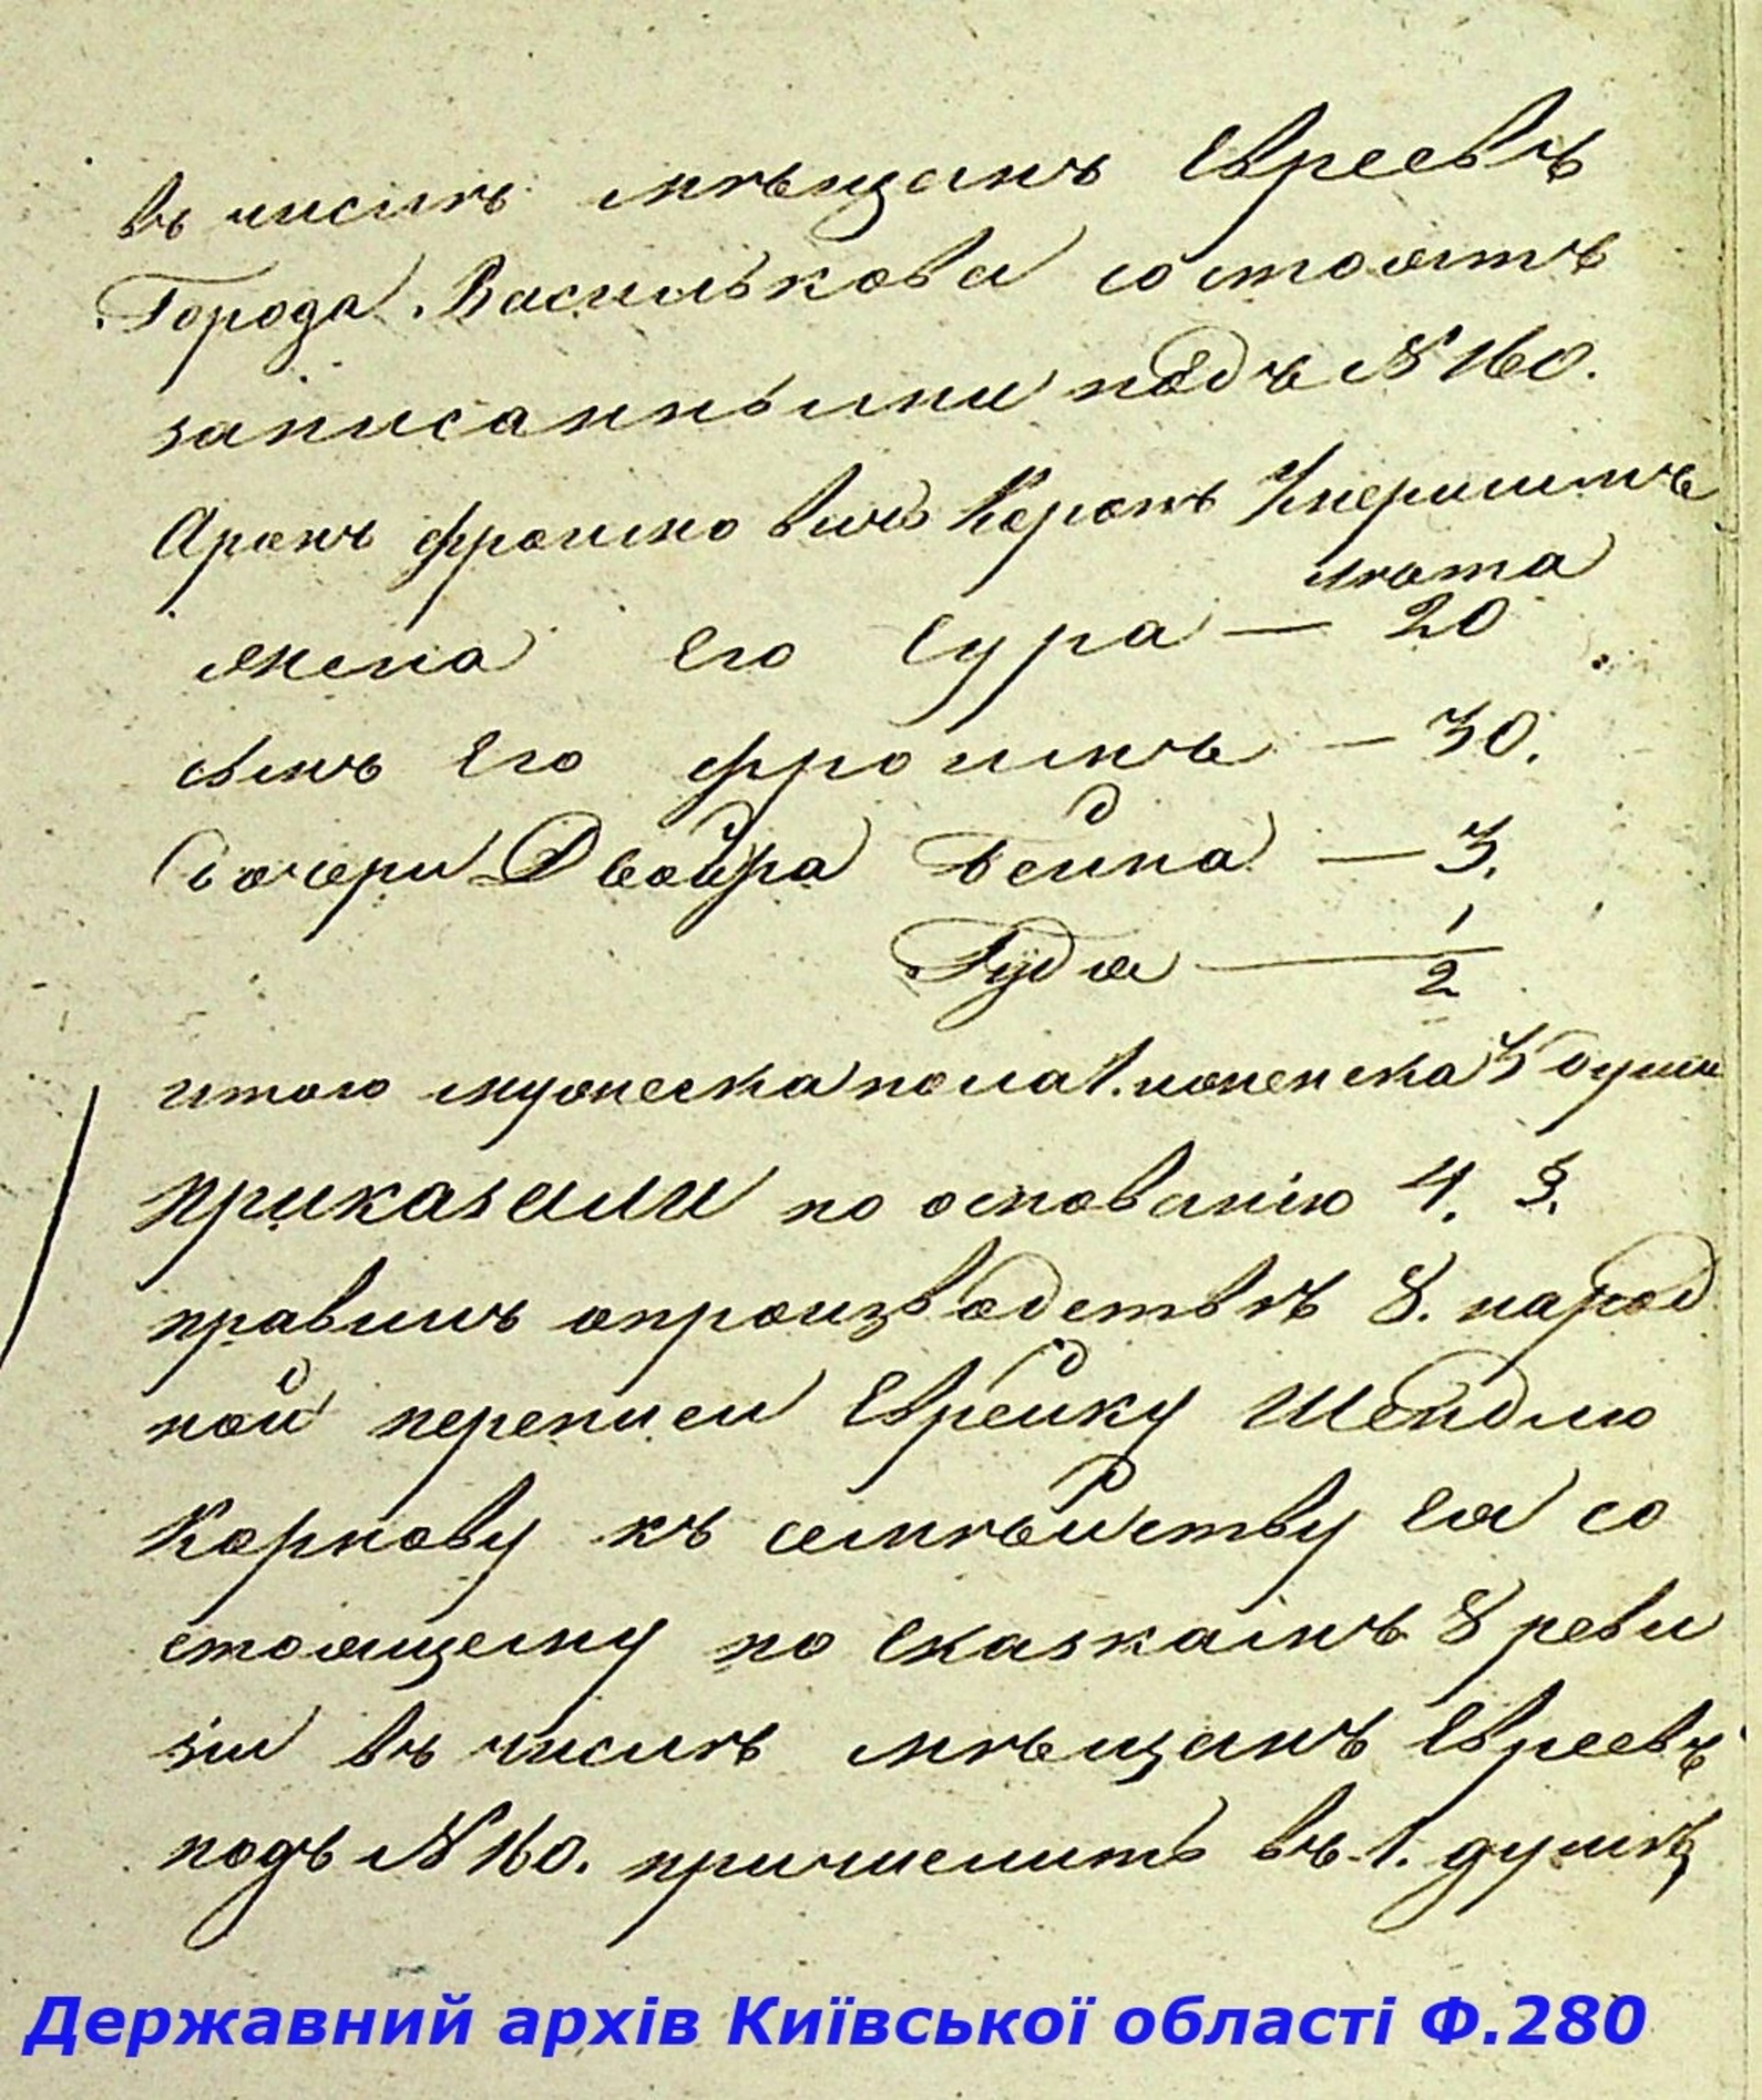 въ числѣ мѣщанъ Евреевъ
Города Василькова состоятъ
записанными подъ № 160.
Аронъ Фроимовичъ Коронъ Умершимъ
лѣта
жена Его Сура — 20
сынъ Его Фроимъ — 30.
Дочери Двойра Бейна — 3.
Гудя — 1/2
итого мужеска пола 1. женска 3 души
приказали по основанію 4. §.
правилъ о производствѣ 8. народ
ной переписи Еврейку Шейндлю
Корнову къ семѣйству Ея со
стоящему по Сказкамъ 8 реви
зіи въ числѣ мѣщанъ Евреевъ
подъ № 160. причислить въ 1. душѣ
Державний архів Київської області Ф.280